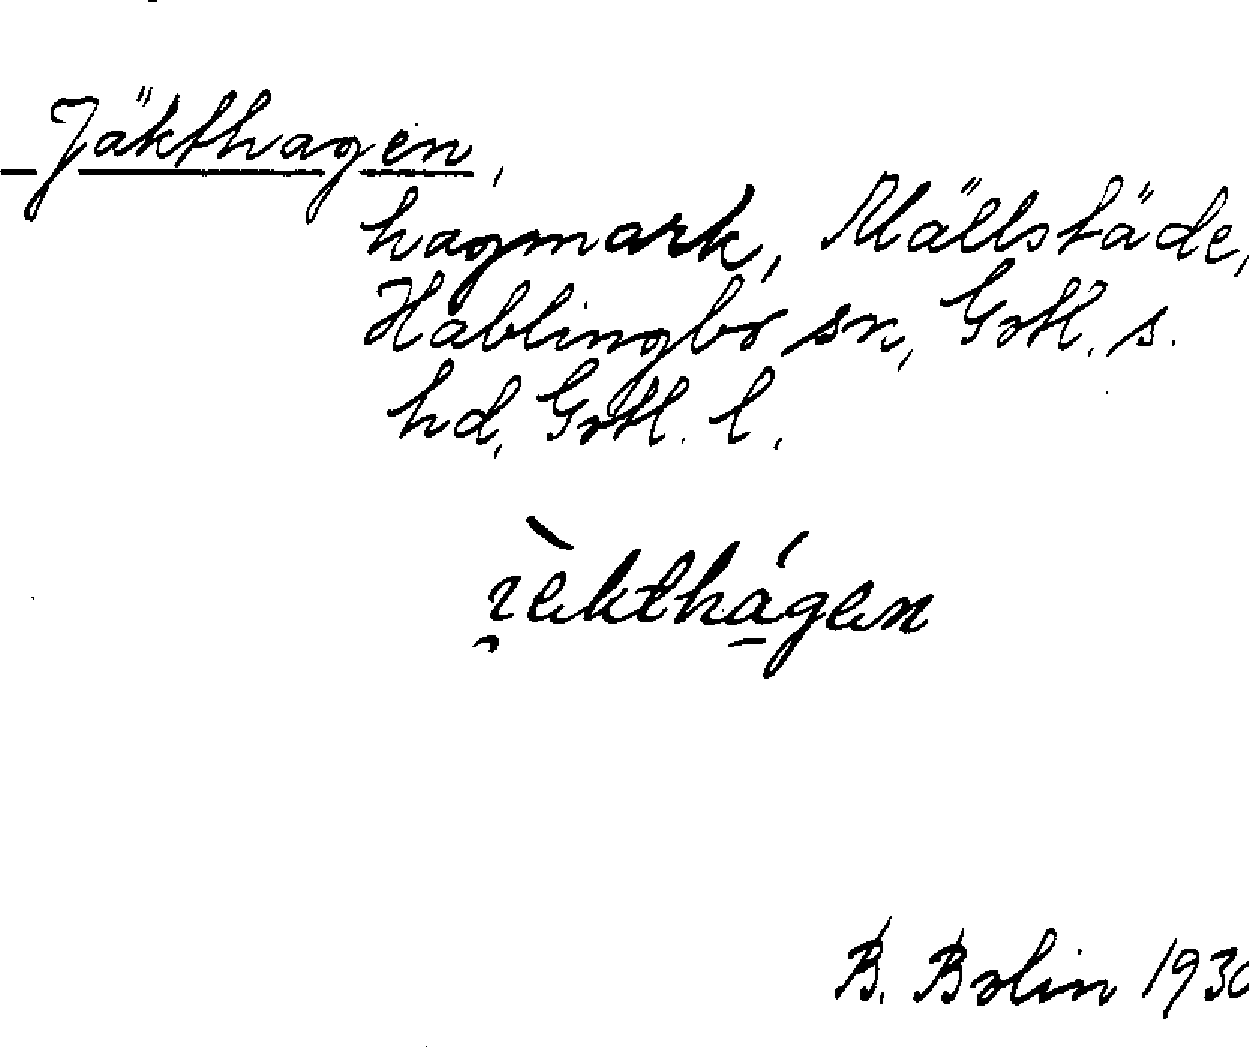 Jäkthagen,
hagmark, Mällstäde,
Hablingbo sn, Gotl. s.
hd, Gotl. l.
B. Bolin 1930